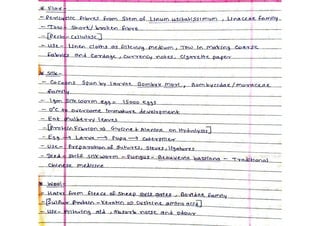 * Flax:-
- Pericyclic fibres from Stem of Linum usitatissimum, Linaceae family.
- Tow - Short / broken fibre.
- [Pecto - cellulosic]
- Use - Linen cloths as filtering medium, Tow in making coarse
fabrics and cordage, currency notes, cigarette paper
* Silk:-
- Cocoons spun by larvae Bombyx mori, Bombycidae / moraceae
family
- 1gm silkworm egg = 1500 eggs
- 0°C to overcome immature development
- Eat mulberry leaves
- [Protein Fibroin to Glycine & Alanine on Hydrolysis]
- Egg → Larva → Pupa → Caterpillar
- Use - Preparation of sutures, sieves, ligatures
- Dead silkworm - Fungus - Beauveria bassiana - Traditional
Chinese medicine
* Wool:-
- Hairs from fleece of sheep Ovis aries, Bovidae family
- [Sulfur Protein - Keratin to Cysteine amino acid]
- Use - Filtering aid, Absorb noise and odour